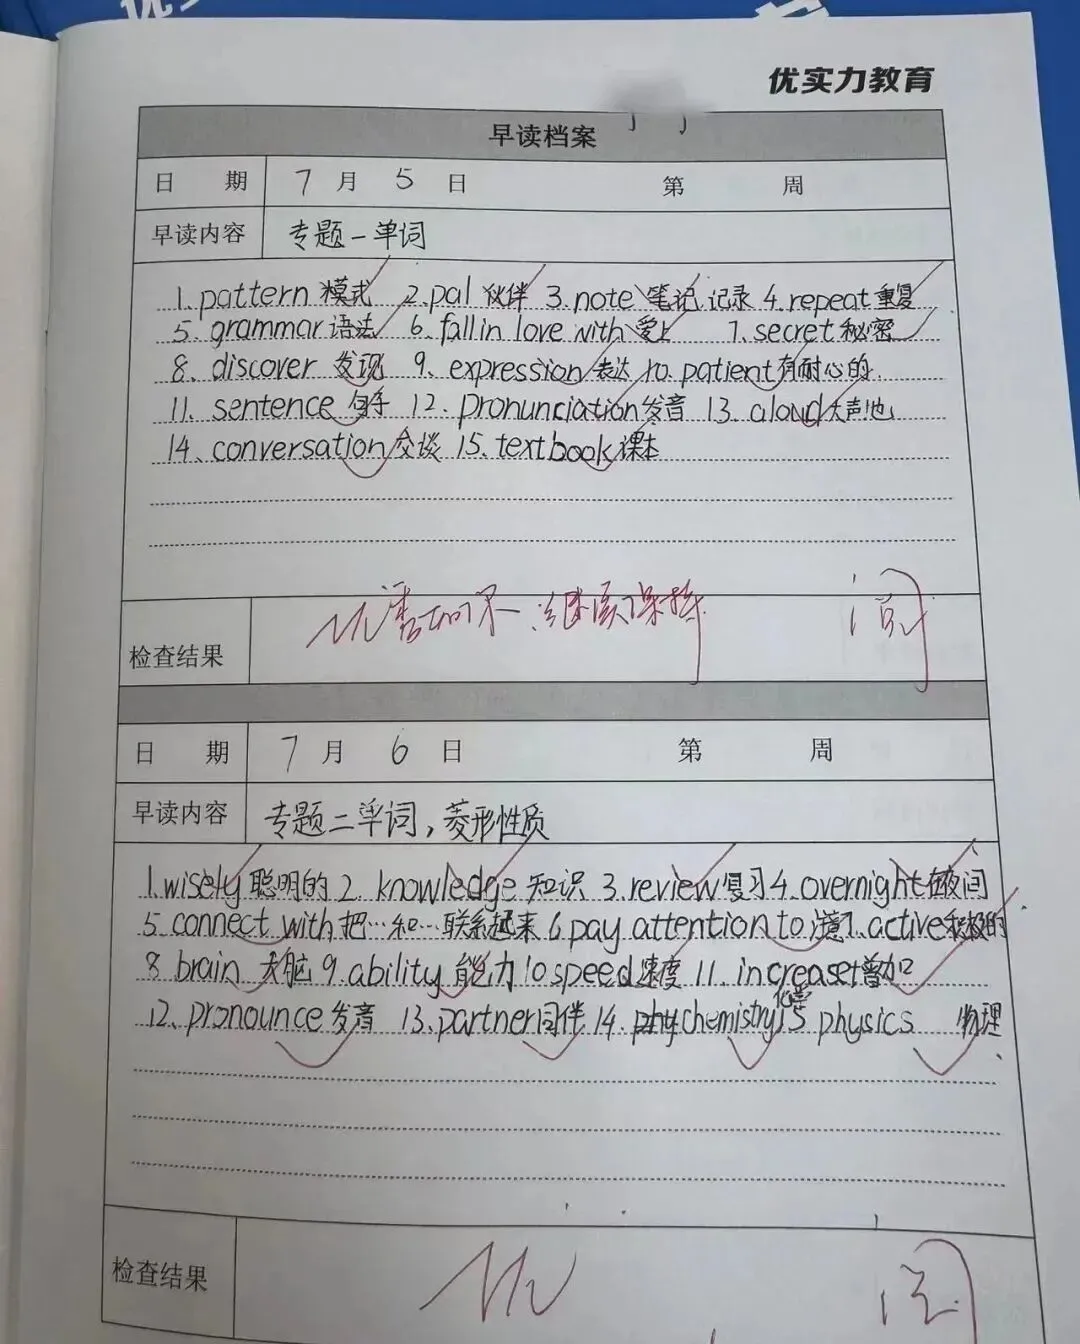 优实力教育
早读档案
日 期 7 月 5 日 第 周
早读内容 专题一单词
1.pattern 模式 2.pal 伙伴 3.note 笔记 记录 4.repeat 重复
5.grammar 语法 6.fall in love with 爱上 7.secret 秘密
8、discover 发现 9、expression 表达 10.patient 有耐心的.
11、sentence 句子 12、pronunciation 发音 13、aloud 大声地
14、conversation 交谈 15、textbook 课本
优 继续保持 阅
检查结果
日 期 7 月 6 日 第 周
早读内容 专题二单词,菱形性质
1.wisely 聪明的 2、knowledge 知识 3.review 复习 4.overnight 在夜间
5.connect with 把…和…联系起来 6.pay attention to 注意 7.active 积极的
8、brain 大脑 9.ability 能力 10 speed 速度 11、increase 增加
化学
12、pronounce 发音 13、partner 同伴 14、chemistry 15 physics 物理
检查结果 优 阅